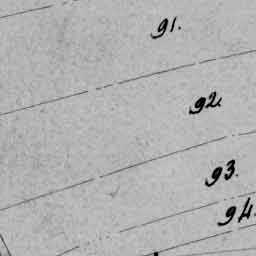 91.
92.
93.
94.